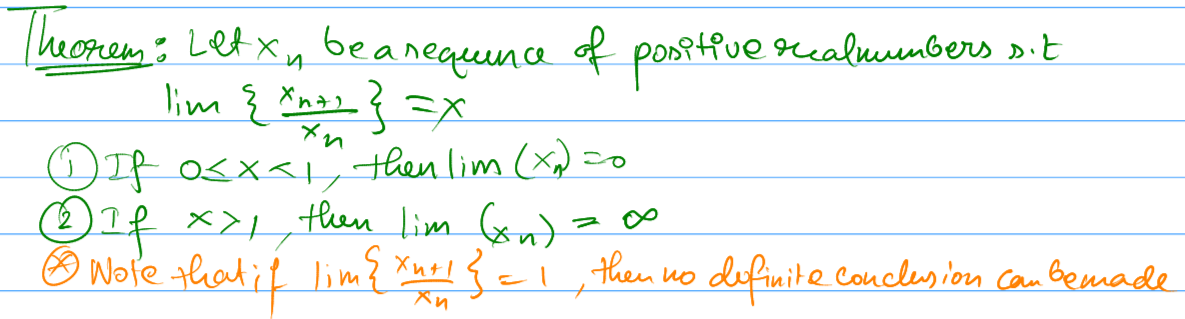 Theorem: Let xₙ be a sequence of positive real numbers s.t
lim { xₙ₊₁ / xₙ } = x
① If 0 ≤ x < 1, then lim (xₙ) = 0
② If x > 1, then lim (xₙ) = ∞
⊛ Note that if lim { xₙ₊₁ / xₙ } = 1, then no definite conclusion can be made